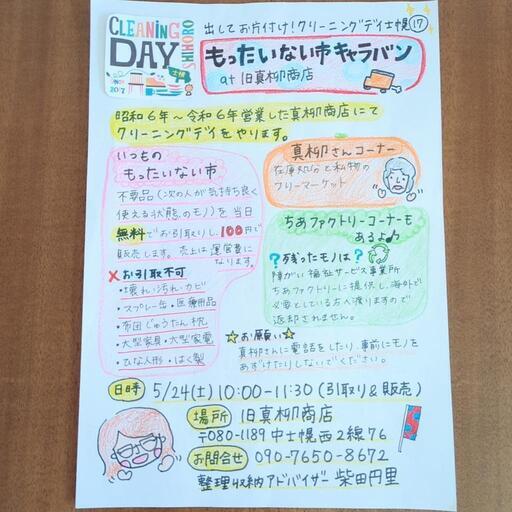 CLEANING
DAY
SHIHORO
士幌
SINCE
2017
出してお片付け!クリーニングデイ士幌⑰
もったいない市キャラバン
at 旧真柳商店
昭和6年〜令和6年営業した真柳商店にて
クリーニングデイをやります。
いつもの
もったいない市
不要品(次の人が気持ち良く
使える状態のモノ)を当日
無料でお引取りし、100円で
販売します。売上は運営費に
なります。
×お引取不可
・壊れ・汚れ・カビ
・スプレー缶・医療用品
・布団じゅうたん枕
・大型家具・大型家電
・ひな人形・はく製
真柳さんコーナー
在庫処分と私物の
フリーマーケット
ちあファクトリーコーナーも
あるよ♪
?残ったモノは?
障がい福祉サービス事業所
ちあファクトリーに提供し、海外で
必要としている方へ渡りますので
返却されません。
☆お願い☆
真柳さんに電話をしたり、事前にモノを
あずけたりしないでください。
日時 5/24(土)10:00-11:30(引取り&販売)
場所 旧真柳商店
〒080-1189 中士幌西2線76
お問合せ 090-7650-8672
整理収納アドバイザー 柴田円里